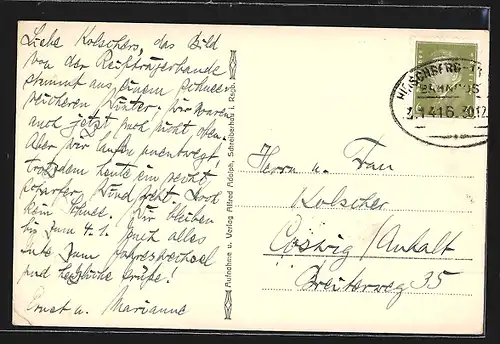 Liebe Kolschers, das Bild
von der Reifträgerbaude
stammt aus einem schnee-
reicheren Winter. Wir waren
auch jetzt noch nicht oben.
Aber wir laufen unentwegt,
trotzdem heute ein recht
scharfer Wind geht. Doch
kein Schnee. Wir bleiben
bis zum 4.1. Euch alles
Gute zum Jahreswechsel
und herzliche Grüße!
Ernst u. Marianne
Aufnahme u. Verlag Alfred Adolph, Schreiberhau i. Rsgb.
HIRSCHBERG
BAHNPOST
Z.1416 30.12.
Herrn u. Frau
Kolscher
Coswig/Anhalt
Breiterweg 35